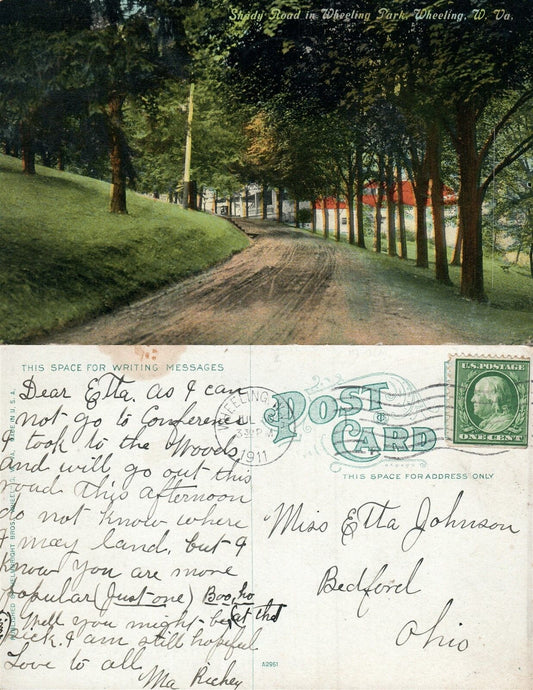 Shady Road in Wheeling Park, Wheeling, W. Va.
THIS SPACE FOR WRITING MESSAGES
Dear Etta. as I can
not go to Conference
took to the Woods,
and will go out this
road this afternoon
do not know where
I may land, but I
know you are more
popular (Just one) Boo, ho
Well you might be (at the
sick. I am still hopeful
Love to all
Ma Richey
WHEELING
JUL
1911
POST CARD
THIS SPACE FOR ADDRESS ONLY
U.S. POSTAGE
ONE CENT
Miss Etta Johnson
Bedford
Ohio
A2951
MADE IN U.S.A.